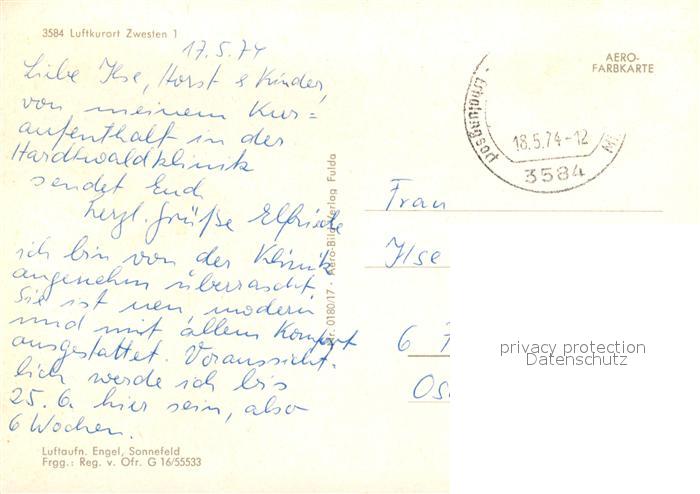 3584 Luftkurort Zwesten 1
17.5.74
Liebe Ilse, Horst & Kinder,
von meinem Kur=
aufenthalt in der
Hardtwaldklinik
sendet Euch
herzl. Grüße Elfriede
ich bin von der Klinik
angenehm überrascht.
Sie ist neu, modern
und mit allem Komfort
ausgestattet. Voraussicht-
lich werde ich bis
25.6. hier sein, also
6 Wochen.
Luftaufn. Engel, Sonnefeld
Frgg.: Reg. v. Ofr. G 16/55533
Nr. 0180/17 · Aero-Bild-Verlag Fulda
AERO-
FARBKARTE
18.5.74-12
3584
Frau
Ilse
6
privacy protection
Datenschutz